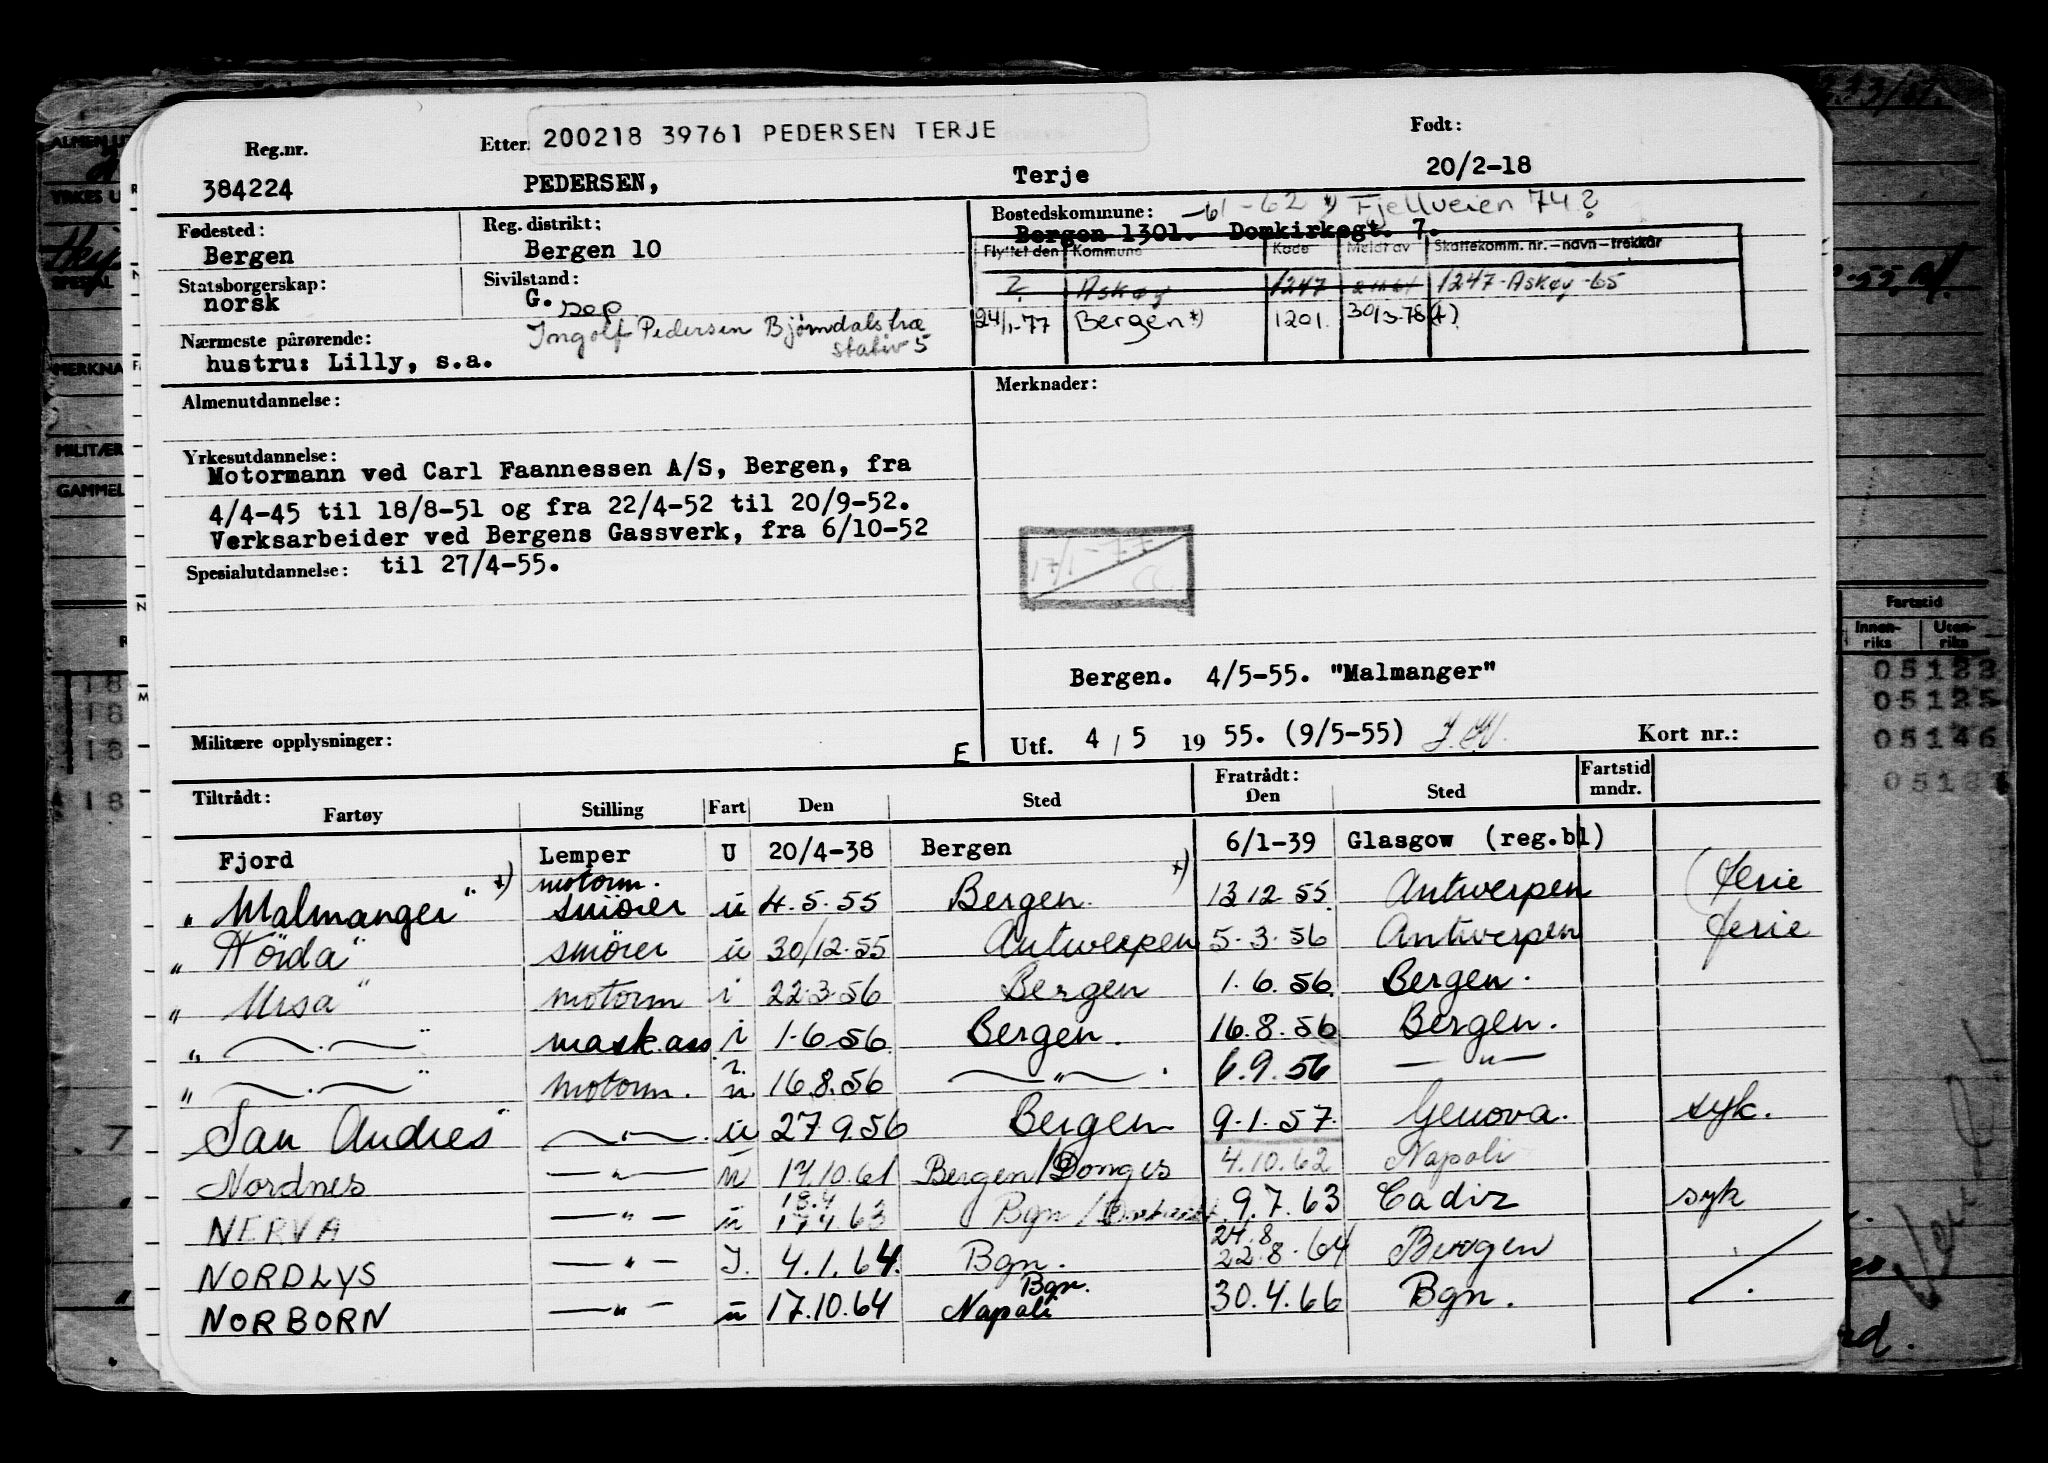 200218 39761 PEDERSEN TERJE
Reg.nr. Etter Født:
384224 PEDERSEN, Terje 20/2-18
Fødested: Reg. distrikt: Bostedskommune: -61-62 *) Fjellveien 74?
Bergen Bergen 10 Bergen 1301. Domkirkegt. 7.
Flyttet den Kommune Kode Meldt av Skattekomm. nr. - navn - trekkår
Statsborgerskap: Sivilstand: ? Askøy 1247 1247-Askøy-65
norsk G. sep
24/1-77 Bergen *) 1201. 30/3-78
Nærmeste pårørende: Ingolf Pedersen Bjørndalstræ
stativ 5
hustru: Lilly, s.a.
Almenutdannelse: Merknader:
Yrkesutdannelse:
Motormann ved Carl Faannessen A/S, Bergen, fra
4/4-45 til 18/8-51 og fra 22/4-52 til 20/9-52.
Verksarbeider ved Bergens Gassverk, fra 6/10-52
Spesialutdannelse: til 27/4-55.
17/1-77
Bergen. 4/5-55. "Malmanger"
Militære opplysninger: E Utf. 4/5 1955. (9/5-55) Kort nr.:
Tiltrådt: Fratrådt: Fartstid
Fartøy Stilling Fart Den Sted Den Sted mndr.
Fjord Lemper U 20/4-38 Bergen 6/1-39 Glasgow (reg.bl)
motorm.
"Malmanger" *) smører u 4.5.55 Bergen. *) 13 12 55 Antwerpen (ferie
"Hörda" smører u 30/12.55 Antwerpen 5.3.56 Antwerpen ferie
"Ursa" motorm i 22.3.56 Bergen 1.6.56. Bergen.
" — . — " mask.ass. i 1.6.56. Bergen. 16.8.56 Bergen.
" — . — " motorm. i. u. 16.8.56 — " — . 6.9.56 — " —
San Andres — " — . u 27.9.56 Bergen 9.1.57. Genova. syk.
Nordnes — " — u 17.10.61 Bergen/Donges 4.10.62 Napoli
18.4
NERVA — " — u 17.4.63 Bgn/ 9.7.63 Cadiz syk
24.8
NORDLYS — " — I. 4.1.64. Bgn. 22.8.64 Bergen
Bgn.
NORBORN — " — u 17.10.64 Napoli 30.4.66 Bgn.
Fartstid
Innen-riks Uten-riks
05123
05125
05146